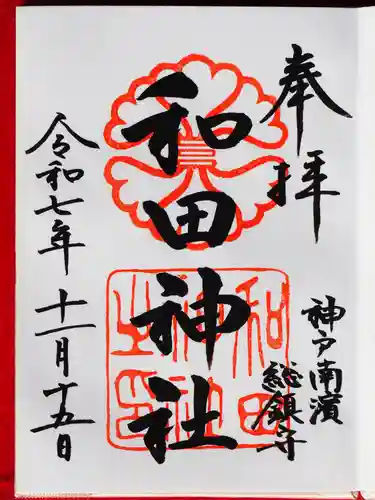 奉拝
神戸南濱
総鎮守
和田神社
和田
神社
之印
令和七年 十一月十五日